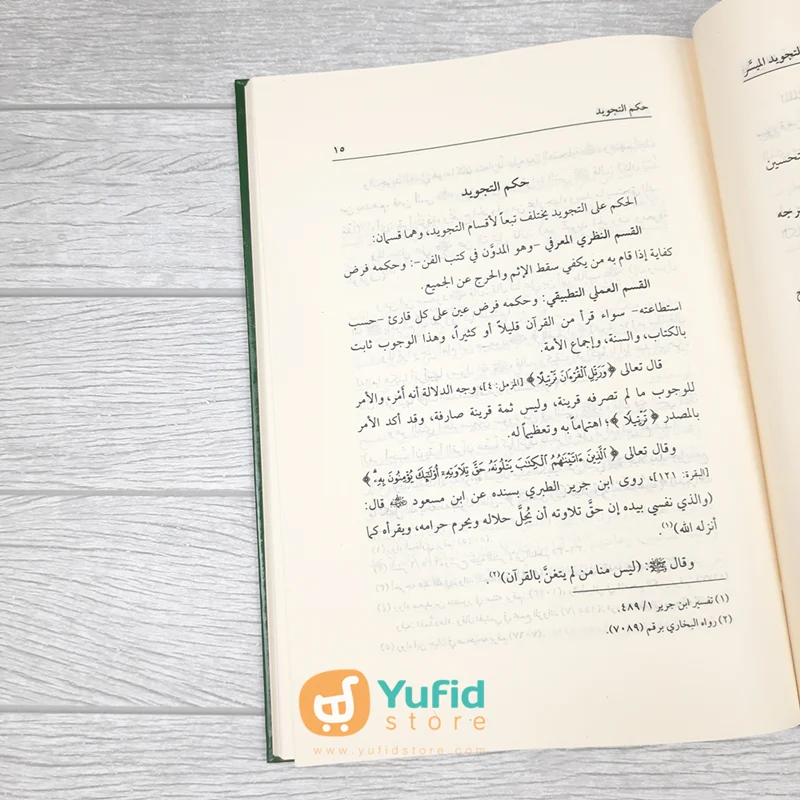 حكم التجويد
١٥
حكم التجويد
الحكم على التجويد يختلف تبعاً لأقسام التجويد، وهما قسمان:
القسم النظري المعرفي -وهو المدوَّن في كتب الفن-: وحكمه فرض
كفاية إذا قام به من يكفي سقط الإثم والحرج عن الجميع.
القسم العملي التطبيقي: وحكمه فرض عين على كل قارئ -حسب
استطاعته- سواء قرأ من القرآن قليلاً أو كثيراً، وهذا الوجوب ثابت
بالكتاب، والسنة، وإجماع الأمة.
قال تعالى ﴿وَرَتِّلِ ٱلْقُرْءَانَ تَرْتِيلًا﴾ [المزمل: ٤]؛ وجه الدلالة أنه أمْر، والأمر
للوجوب ما لم تصرفه قرينة، وليس ثمة قرينة صارفة، وقد أكد الأمر
بالمصدر ﴿تَرْتِيلًا﴾؛ اهتماماً به وتعظيماً له.
وقال تعالى ﴿ٱلَّذِينَ ءَاتَيْنَٰهُمُ ٱلْكِتَٰبَ يَتْلُونَهُۥ حَقَّ تِلَاوَتِهِۦٓ أُو۟لَٰٓئِكَ يُؤْمِنُونَ بِهِۦ﴾
[البقرة: ١٢١]، روى ابن جرير الطبري بسنده عن ابن مسعود رضي الله عنه قال:
(والذي نفسي بيده إن حقَّ تلاوته أن يُحِلَّ حلاله ويحرم حرامه، ويقرأه كما
أنزله الله)(١).
وقال ﷺ: (ليس منا من لم يتغنَّ بالقرآن)(٢).
(١) تفسير ابن جرير ١/ ٤٨٩.
(٢) رواه البخاري برقم (٧٠٨٩).
التجويد الميسَّر
Yufid
store
www.yufidstore.com